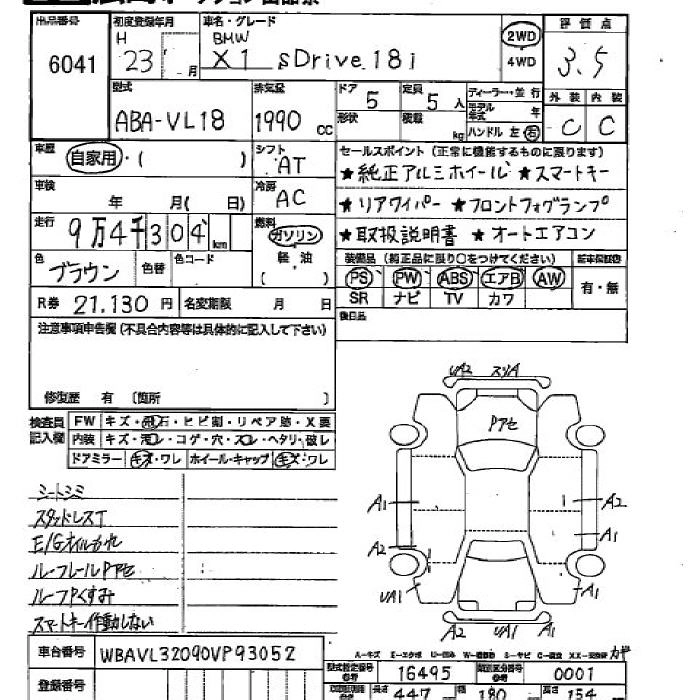 出品番号 初度登録年月 車名・グレード 評価点
6041 H 23 月 BMW X1 sDrive 18i 2WD 4WD 3.5
型式 排気量 ドア 定員 ディーラー・並行 外装 内装
ABA-VL18 1990 cc 5 5人 モデル年式 年 C C
形状 積載 kg ハンドル 左 右
車歴 自家用・( ) シフト AT セールスポイント (正常に機能するものに限ります)
★純正アルミホイール ★スマートキー
車検 年 月( 日) 冷房 AC
★リアワイパー ★フロントフォグランプ
走行 9万4千304 km 燃料 ガソリン
★取扱説明書 ★オートエアコン
軽油
( )
色 ブラウン 色替 色コード
装備品 (純正品に限り○をつけてください)
PS PW ABS エアB AW 有・無
SR ナビ TV カワ
R券 21.130 円 名変期限 月 日
後日品
注意事項申告欄(不具合内容等は具体的に記入して下さい)
修復歴 有 〔箇所 〕
検査員記入欄 FW キズ・飛石・ヒビ割・リペア跡・X要
内装 キズ・汚レ・コゲ・穴・スレ・ヘタリ・破レ
ドアミラー キズ・ワレ ホイール・キャップ キズ・ワレ
UA2 スリA
Pアセ
シートシミ
スタッドレスT
E/Gオイルもれ
ルーフレールPアセ
ルーフPくすみ
スマートキー作動しない
A1 A2
A1
A2
UA1 A1
A2 UA1 A1
車台番号 WBAVL32090VP93052
A-キズ E-エクボ U-凹み W-補修跡 S-サビ C-腐食 XX-交換済
型式指定番号 16495 類別区分番号 0001
登録番号
長さ 447 幅 180 高さ 154